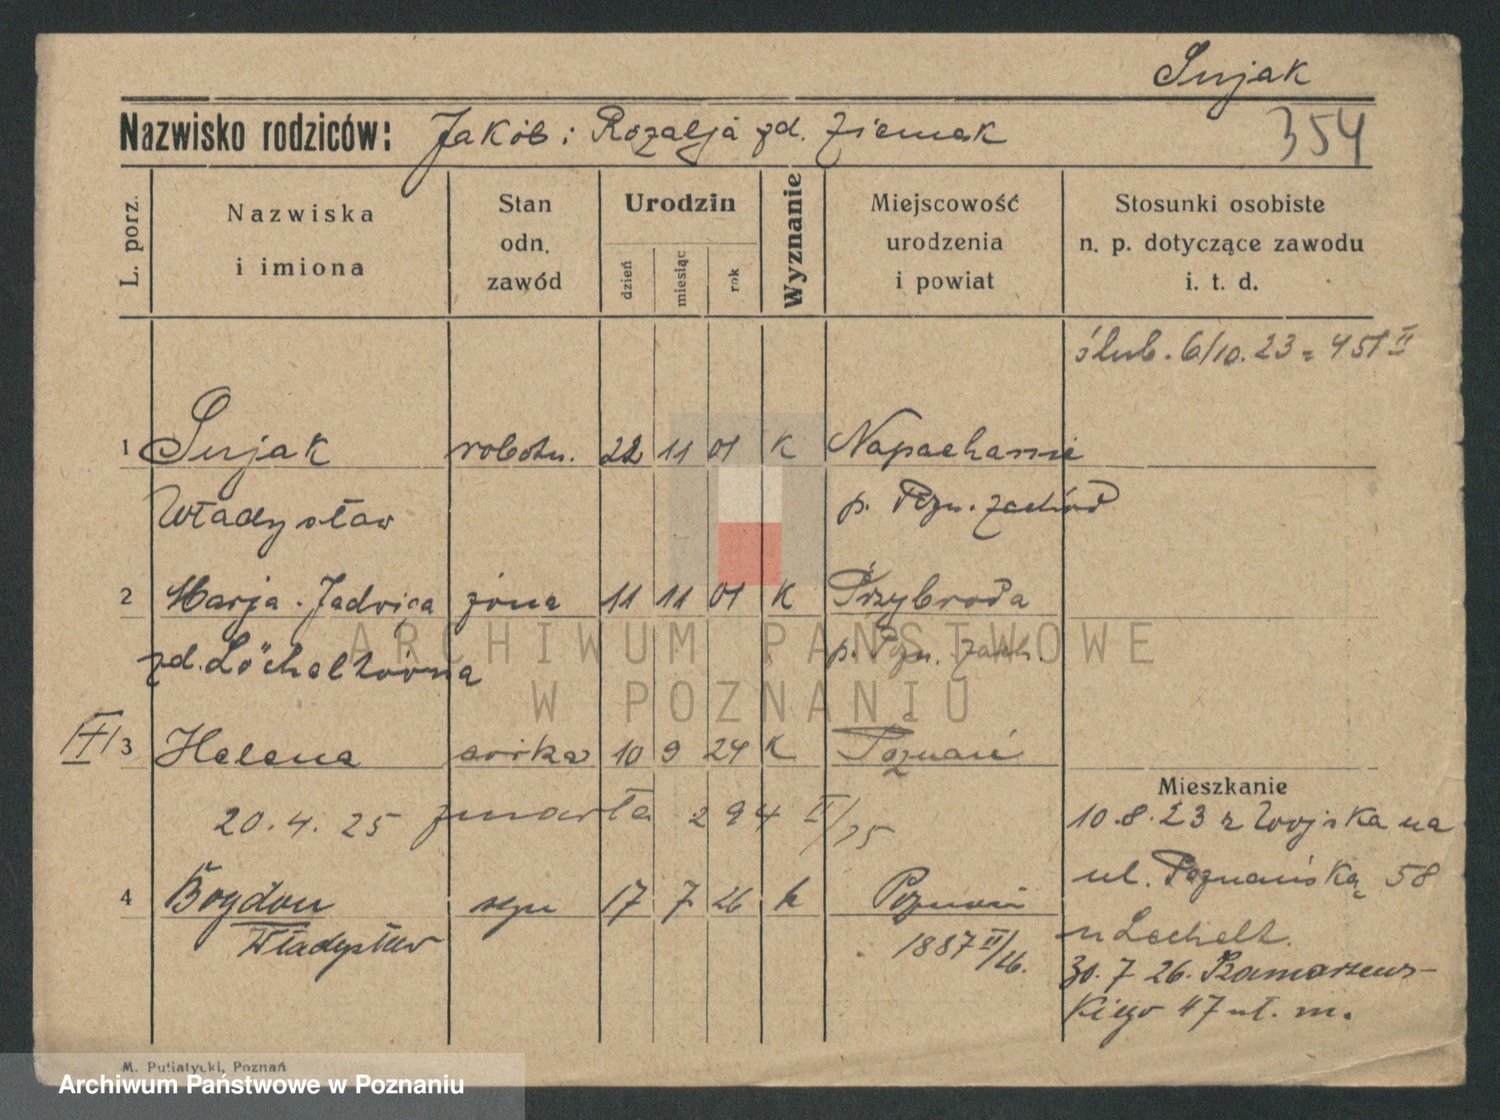 Sujak
Nazwisko rodziców: Jakób i Rozalja zd. Ziemek
354
L. porz.
Nazwiska
i imiona
Stan
odn.
zawód
Urodzin
dzień
miesiąc
rok
Wyznanie
Miejscowość
urodzenia
i powiat
Stosunki osobiste
n. p. dotyczące zawodu
i. t. d.
ślub. 6/10.23 = 451 II
1 Sujak robotn. 22 11 01 K Napachanie
Władysław p. Pozn. zachód
2 Marja-Jadwiga żona 11 11 01 K Przybroda
zd. Löcheltówna p. Pozn. zach.
ARCHIWUM PAŃSTWOWE
W POZNANIU
3 Helena córka 10 9 24 K Poznań
Mieszkanie
20.4.25 zmarła 294 II/25
10.8.23 z Wojska na
ul. Poznańską 58
4 Bogdan syn 17 7 26 k Poznań
Władysław 1887 II/26.
u Lechelt.
30.7 26. Szamarzews-
kiego 47 ut. m.
M. Putiatycki, Poznań
Archiwum Państwowe w Poznaniu